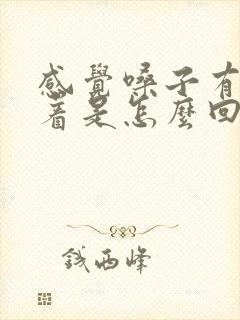 感覺嗓子有
着是怎麼回
錢西峰